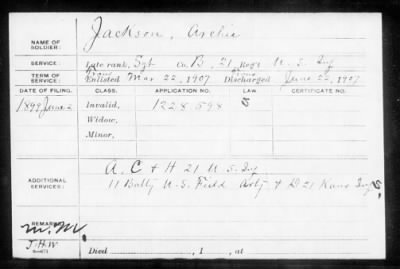 Jackson, Archie
NAME OF
SOLDIER:
SERVICE:
Late rank, Sgt Co. B, 21 Reg't U.S. Inf
TERM OF
SERVICE:
Enlisted Mar 22, 1907 Discharged June 22, 1907
DATE OF FILING. CLASS. APPLICATION NO. LAW CERTIFICATE NO.
1899 June 2 Invalid, 1228598
Widow,
Minor,
ADDITIONAL
SERVICES:
A, C & H 21 U.S. Inf
11 Batty U.S. Field Arty & D 21 Kans Inf
REMARKS:
J.H.W
Died , 1 , at